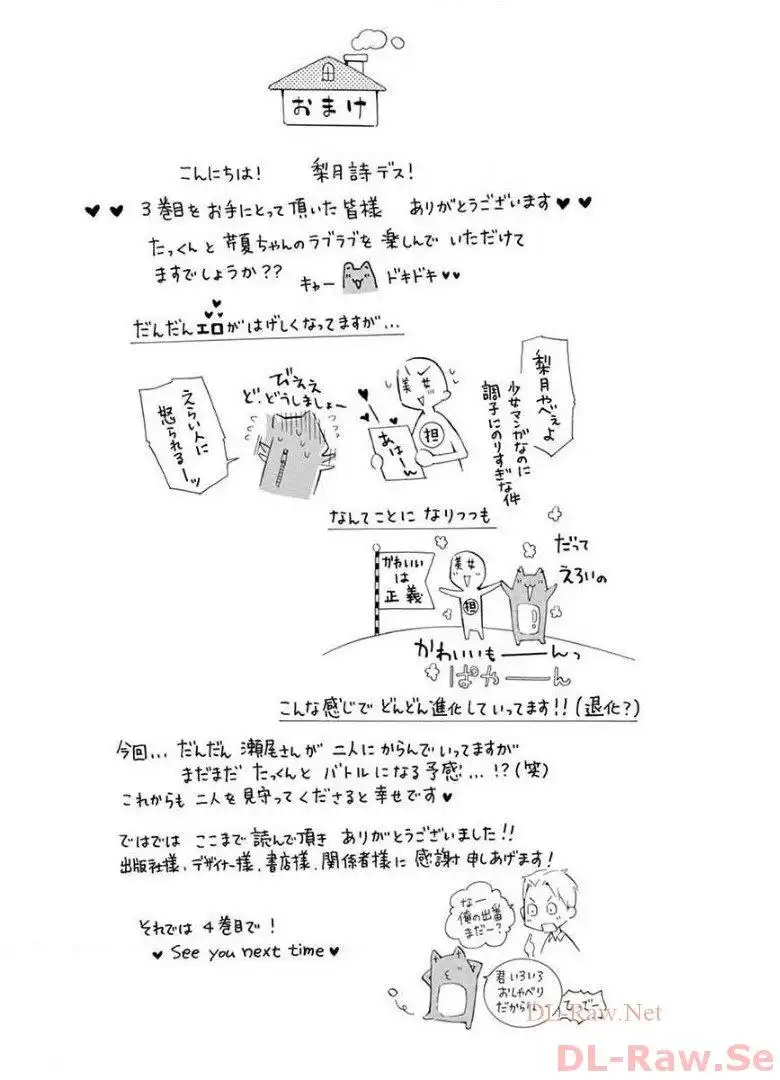 おまけ
こんにちは! 梨月詩デス!
♥ ♥ 3巻目をお手にとって頂いた皆様 ありがとうございます♥ ♥
たっくんと芹夏ちゃんのラブラブを楽しんでいただけて
ますでしょうか?? キャー ドキドキ♥♥
だんだんエロがはげしくなってますが…
梨月やべぇよ
少女マンガなのに
調子にのりすぎな件
美女
担
あはーん
びええ
ど、どうしましょー
えらい人に
怒られるーッ
なんてことになりつつも
だって
えろいの
かわいい
は
正義
美女
担
かわいいも――んっ
ぱやーーん
こんな感じで どんどん進化していってます!!(退化?)
今回… だんだん 瀬尾さんが 二人にからんでいってますが
まだまだ たっくんと バトルになる予感…!?(笑)
これからも 二人を見守ってくださると幸せです♥
ではでは ここまで読んで頂き ありがとうございました!!
出版社様、デザイナー様、書店様、関係者様に 感謝申しあげます!
なー
俺の出番
まだー?
それでは 4巻目で!
♥ See you next time ♥
君いろいろ
おしゃべり
だからな
ひっでー
DL-Raw.Net
DL-Raw.Se